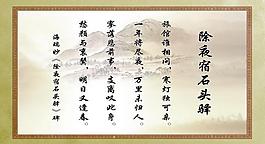 除夜宿石头驿
旅馆谁相问，寒灯独可亲。
一年将尽夜，万里未归人。
寥落悲前事，支离叹此身。
愁颜与衰鬓，明日又逢春。
海瑞妙《除夜宿石头驿》碑